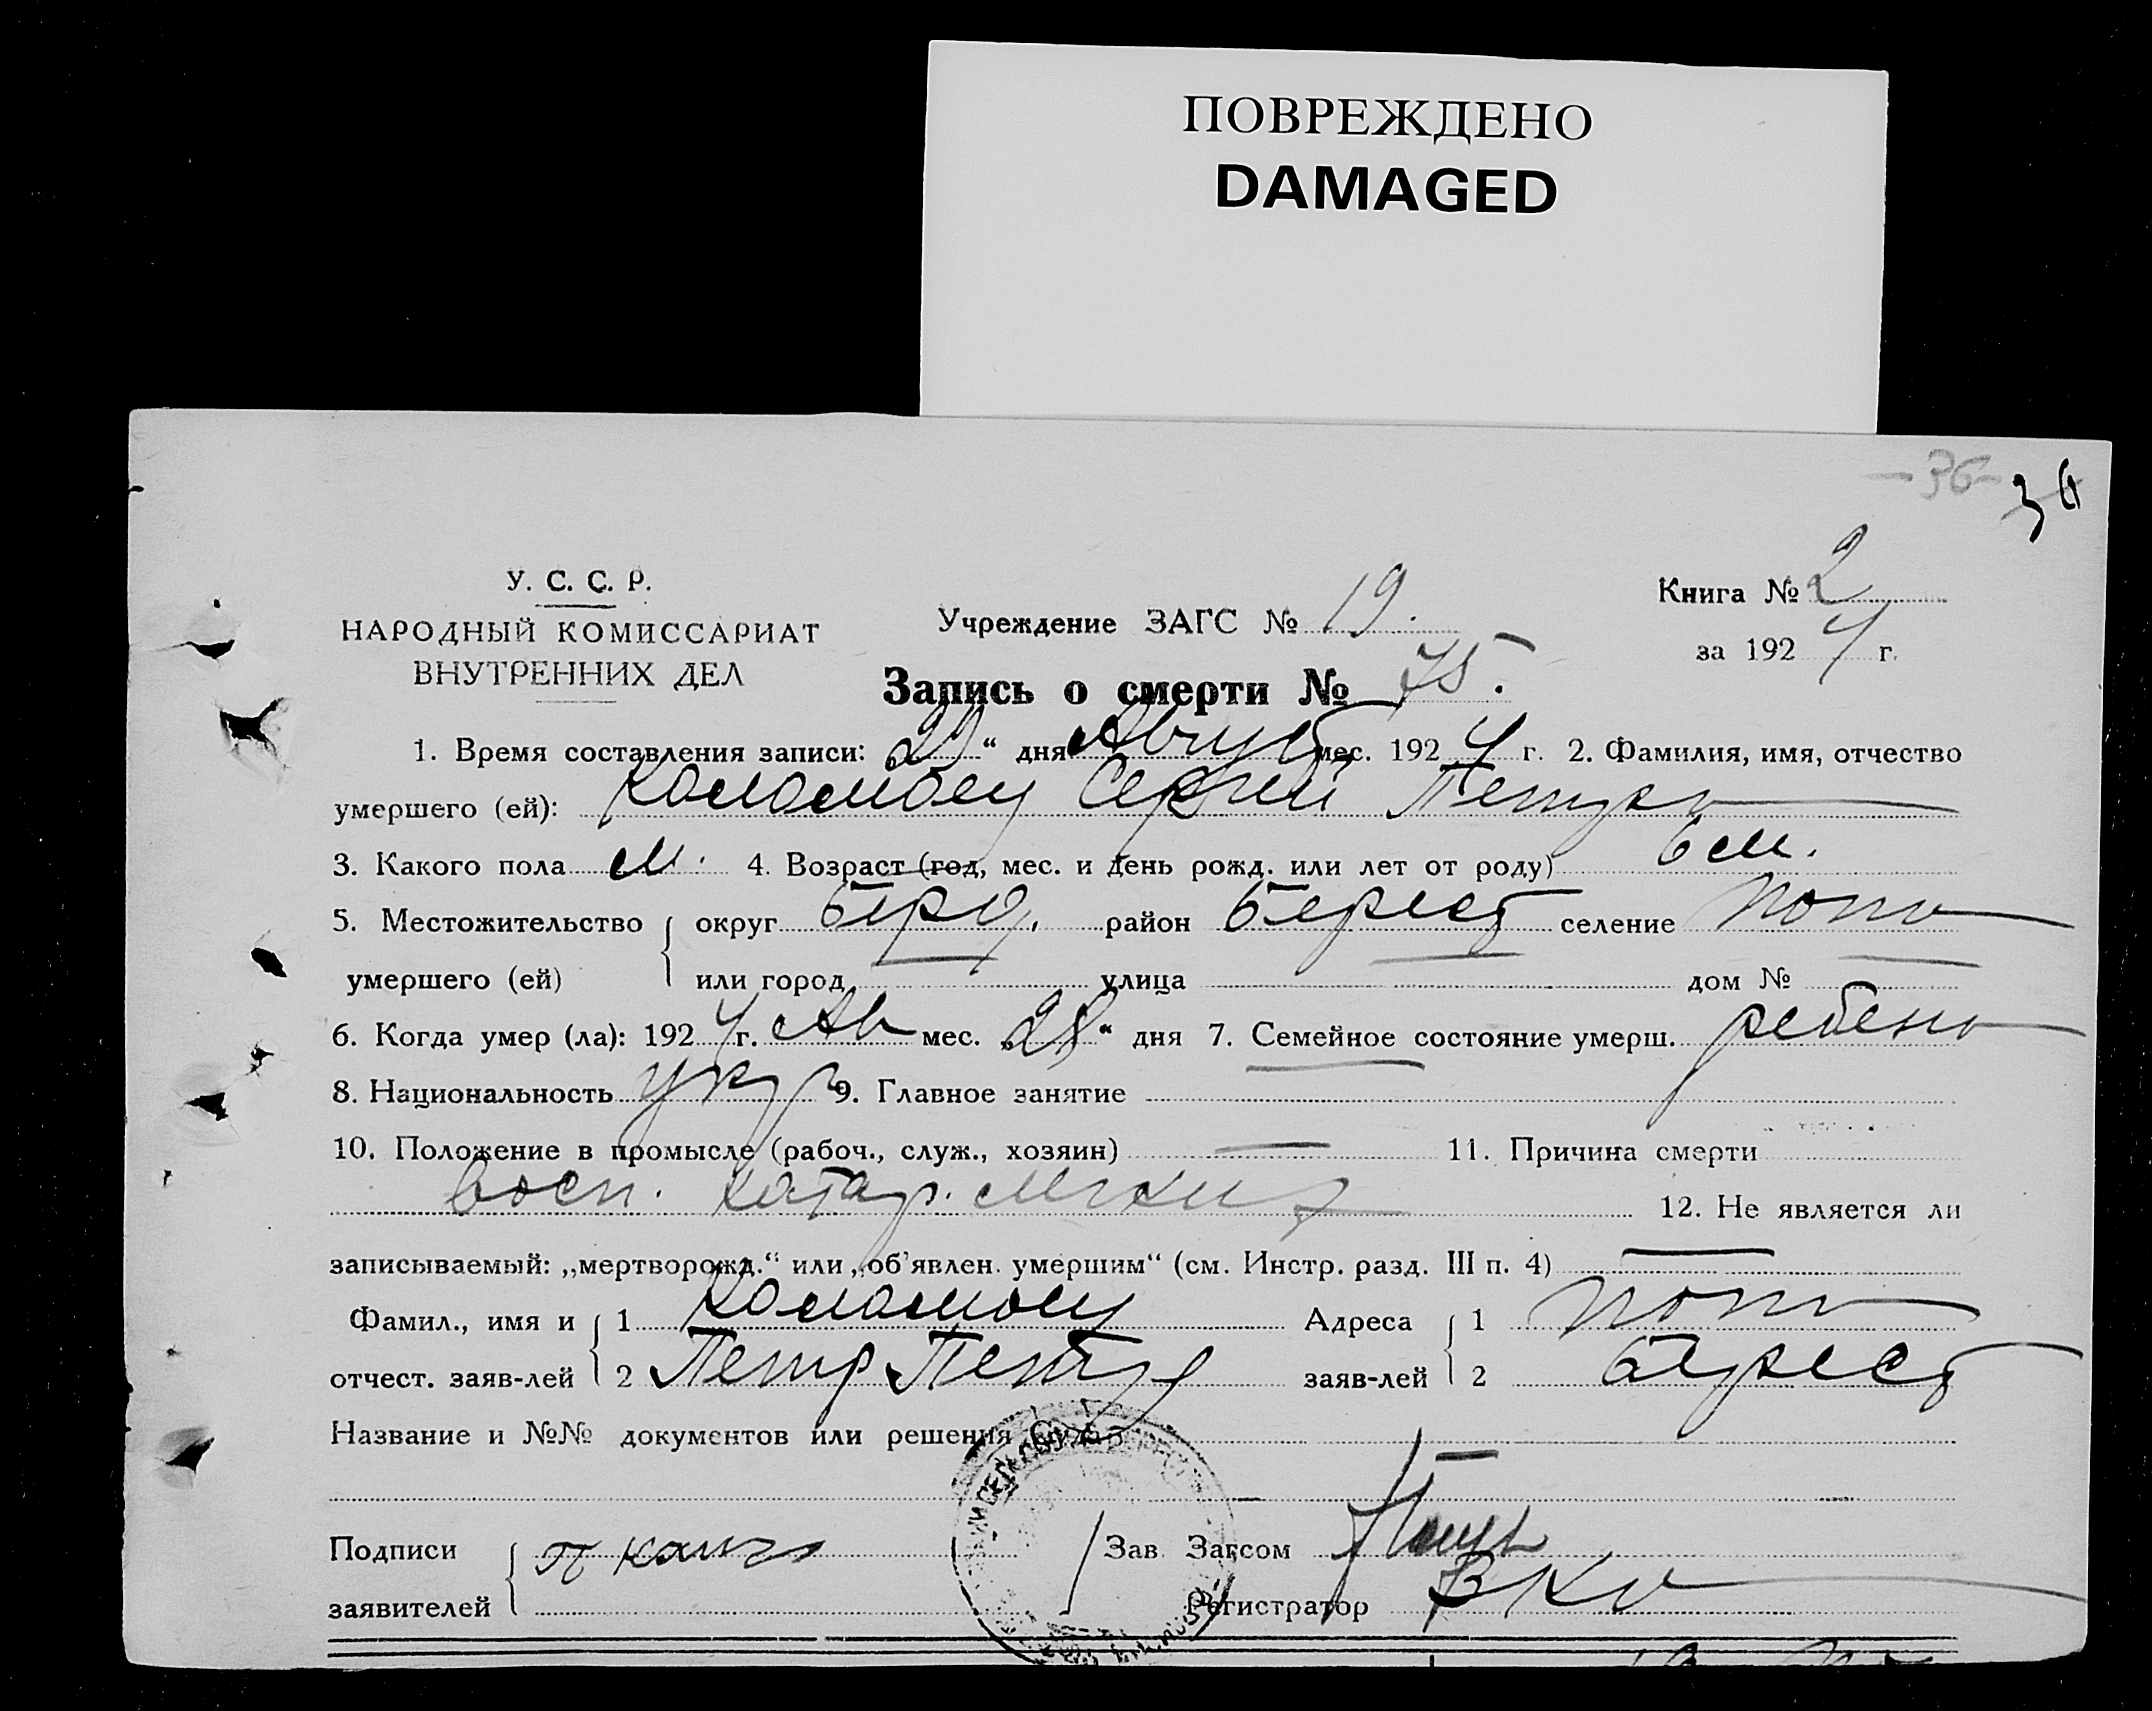 ПОВРЕЖДЕНО
DAMAGED
- 36 - 36
У. С. С. Р.
НАРОДНЫЙ КОМИССАРИАТ
ВНУТРЕННИХ ДЕЛ
Учреждение ЗАГС № 19.
Книга № 2
за 1924 г.
Запись о смерти № 75.
1. Время составления записи: 29 “ дня Август мес. 1924 г. 2. Фамилия, имя, отчество
умершего (ей): Сергей
3. Какого пола м. 4. Возраст (год, мес. и день рожд. или лет от роду) 6 м.
5. Местожительство округ район Берест селение
умершего (ей) или город улица дом №
6. Когда умер (ла): 1924 г. Ав мес. „28“ дня 7. Семейное состояние умерш. ребено
8. Национальность укр 9. Главное занятие
10. Положение в промысле (рабоч., служ., хозяин) — 11. Причина смерти
восп. катар. 12. Не является ли
записываемый: „мертворожд.“ или „об'явлен. умершим“ (см. Инстр. разд. III п. 4) —
Фамил., имя и 1 Адреса 1
отчест. заяв-лей 2 Петр Петр заяв-лей 2 Берест
Название и №№ документов или решения суда
Подписи Зав. Загсом
заявителей Регистратор